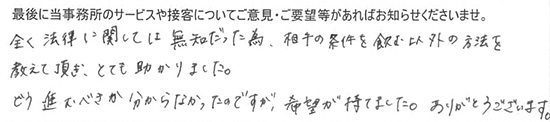 最後に当事務所のサービスや接客についてご意見・ご要望等があればお知らせくださいませ。
全く法律に関しては無知だった為、相手の条件を飲む以外の方法を
教えて頂き、とても助かりました。
どう進むべきか分からなかったのですが、希望が持てました。ありがとうございます。